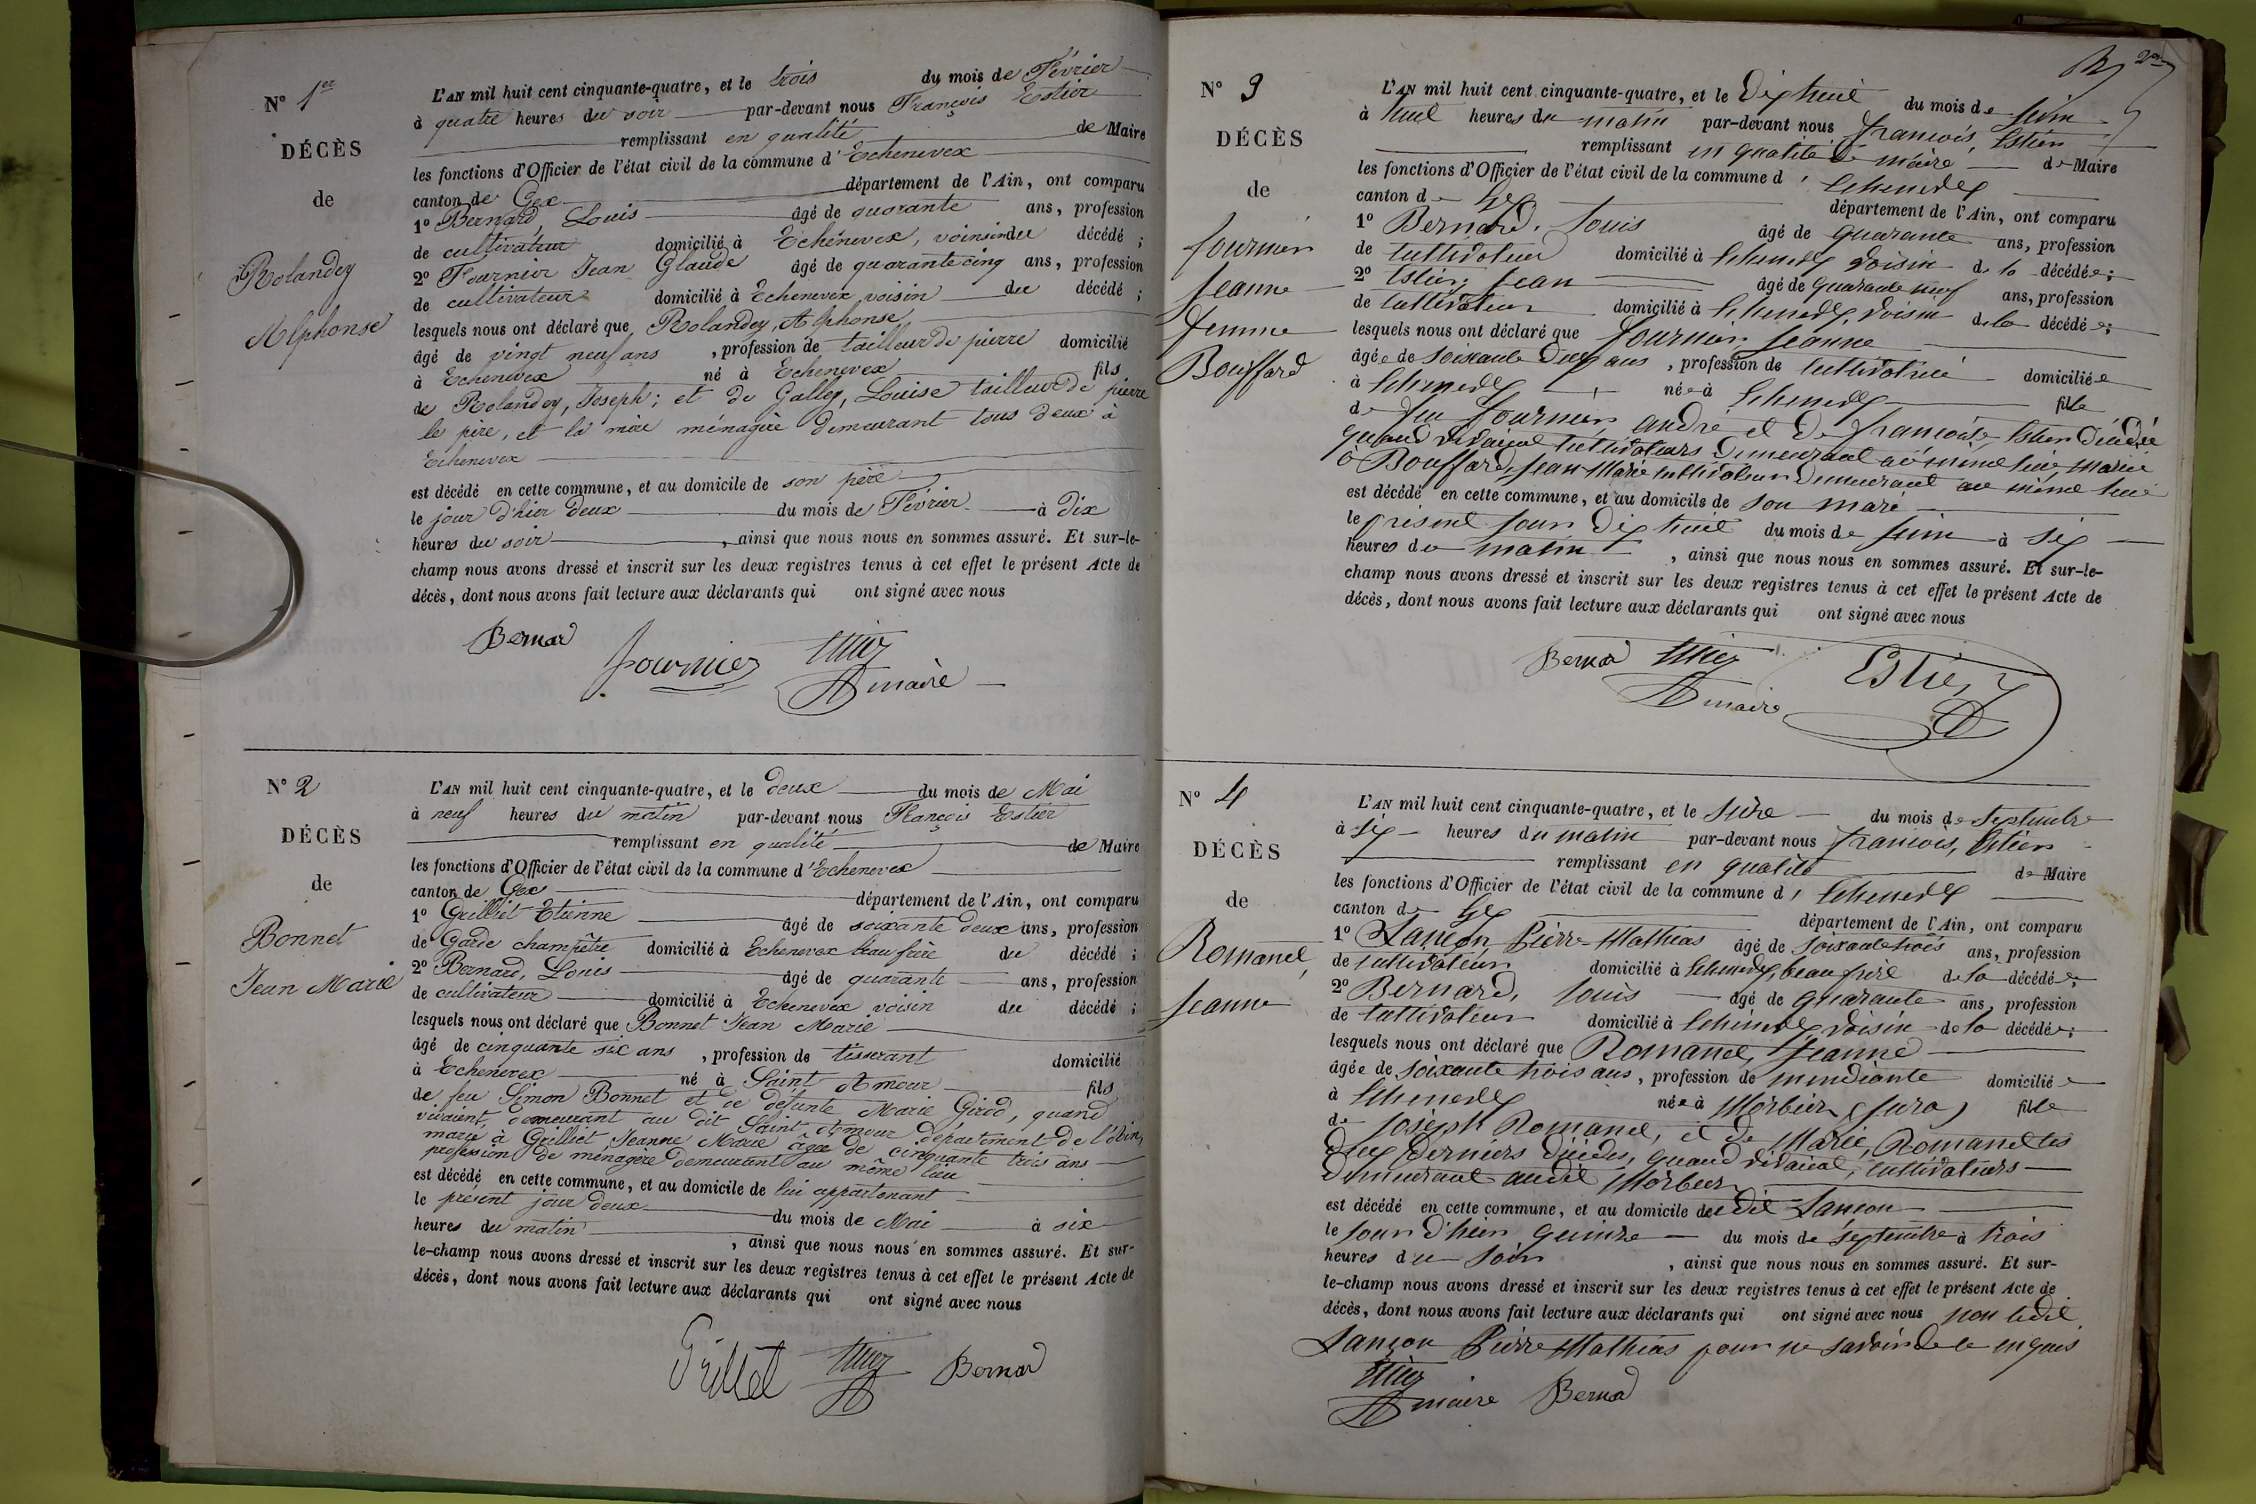 N° 1er
DÉCÈS
de
Rolandey
Alphonse
L'AN mil huit cent cinquante-quatre, et le trois du mois de Février
à quatre heures du soir par-devant nous François Estier
remplissant en qualité de Maire
les fonctions d'Officier de l'état civil de la commune d'Echenevex
canton de Gex département de l'Ain, ont comparu
1° Bernard, Louis âgé de quarante ans, profession
de cultivateur domicilié à Echenevex, voisin du décédé ;
2° Fournier Jean Glaude âgé de quarante cinq ans, profession
de cultivateur domicilié à Echenevex voisin du décédé ;
lesquels nous ont déclaré que Rolandey, Alphonse
âgé de vingt neuf ans , profession de tailleur de pierre domicilié
à Echenevex né à Echenevex fils
de Rolandey, Joseph ; et de Galley, Louise tailleur de pierre
le père, et la mère ménagère demeurant tous deux à
Echenevex
est décédé en cette commune, et au domicile de son père
le jour d'hier deux du mois de Février à dix
heures du soir , ainsi que nous nous en sommes assuré. Et sur-le-
champ nous avons dressé et inscrit sur les deux registres tenus à cet effet le présent Acte de
décès, dont nous avons fait lecture aux déclarants qui ont signé avec nous
Bernar Fournier
maire
N° 2
DÉCÈS
de
Bonnet
Jean Marie
L'AN mil huit cent cinquante-quatre, et le deux du mois de Mai
à neuf heures du matin par-devant nous François Estier
remplissant en qualité de Maire
les fonctions d'Officier de l'état civil de la commune d'Echenevex
canton de Gex département de l'Ain, ont comparu
1° Grilliet Etienne âgé de soixante deux ans, profession
de Garde champêtre domicilié à Echenevex beau frère du décédé ;
2° Bernard, Louis âgé de quarante ans, profession
de cultivateur domicilié à Echenevex voisin du décédé ;
lesquels nous ont déclaré que Bonnet Jean Marie
âgé de cinquante six ans , profession de tisserant domicilié
à Echenevex né à Saint Amour fils
de feu Simon Bonnet et de defunte Marie Girod, quand
vivaient, demeurant au dit Saint Amour département de l'Ain,
marié à Grilliet Jeanne Marie âgée de cinquante trois ans
profession de ménagère demeurant au même lieu
est décédé en cette commune, et au domicile de lui appartenant
le présent jour deux du mois de Mai à six
heures du matin , ainsi que nous nous en sommes assuré. Et sur-
le-champ nous avons dressé et inscrit sur les deux registres tenus à cet effet le présent Acte de
décès, dont nous avons fait lecture aux déclarants qui ont signé avec nous
Grilliet Bernar
2me
N° 3
DÉCÈS
de
fournier
Jeanne
femme
Bouffard
L'AN mil huit cent cinquante-quatre, et le Dix huit du mois de Juin
à huit heures du matin par-devant nous françois, Estier
remplissant en qualité de maire de Maire
les fonctions d'Officier de l'état civil de la commune d' Echenevex
canton de Gex département de l'Ain, ont comparu
1° Bernard, Louis âgé de quarante ans, profession
de cultivateur domicilié à Echenevex voisin de la décédée ;
2° Estier, Jean âgé de quarante neuf ans, profession
de cultivateur domicilié à Echenevex, voisin de la décédée ;
lesquels nous ont déclaré que fournier, Jeanne
âgée de soixante dix ans , profession de cultivatrice domiciliée
à Echenevex née à Echenevex fille
de feu fournier, andré et de françoise, Estier Décédée
quand vivaient cultivateurs demeurant au même lieu mariée
à Bouffard, Jean Marie cultivateur demeurant au même lieu
est décédé en cette commune, et au domicile de son mari
le présent jour Dix huit du mois de Juin à six
heures du matin , ainsi que nous nous en sommes assuré. Et sur-le-
champ nous avons dressé et inscrit sur les deux registres tenus à cet effet le présent Acte de
décès, dont nous avons fait lecture aux déclarants qui ont signé avec nous
Bernar Estier
maire
N° 4
DÉCÈS
de
Romanet,
Jeanne
L'AN mil huit cent cinquante-quatre, et le seize du mois de Septembre
à six heures du matin par-devant nous françois, Estier
remplissant en qualité de Maire
les fonctions d'Officier de l'état civil de la commune d' Echenevex
canton de Gex département de l'Ain, ont comparu
1° Lançon Pierre Mathias âgé de soixante trois ans, profession
de cultivateur domicilié à Echenevex, beau frère de la décédée ;
2° Bernard, Louis âgé de quarante ans, profession
de cultivateur domicilié à Echenevex voisin de la décédée ;
lesquels nous ont déclaré que Romanet, Jeanne
âgée de soixante trois ans, profession de mendiante domiciliée
à Echenevex née à Morbier (Jura) fille
de Joseph Romanet, et de Marie, Romanet les
deux derniers décédés, quand vivaient, cultivateurs
demeurant audit Morbier
est décédé en cette commune, et au domicile du dit Lançon
le jour d'hier quinze du mois de septembre à trois
heures du soir , ainsi que nous nous en sommes assuré. Et sur-
le-champ nous avons dressé et inscrit sur les deux registres tenus à cet effet le présent Acte de
décès, dont nous avons fait lecture aux déclarants qui ont signé avec nous non ledit
Lançon Pierre Mathias pour ne savoir de ce enquis
maire Bernar